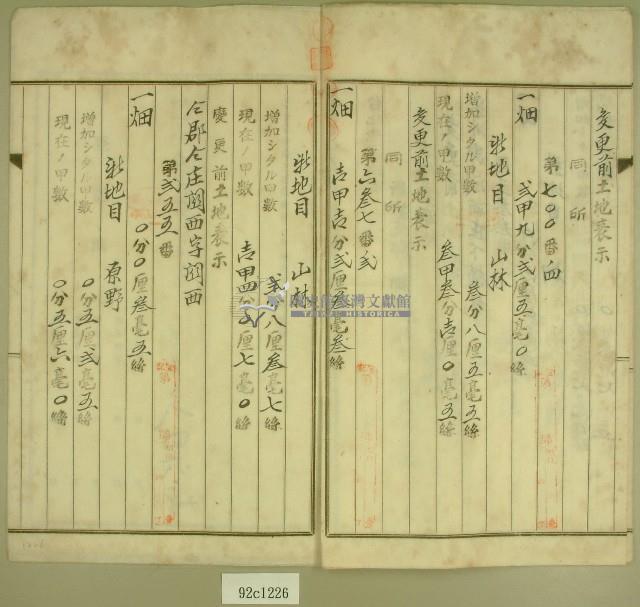 変更前土地表示
同所
第七〇〇番ノ四
一畑 弐甲九分弐厘五毫〇絲
新地目 山林
増加シタル甲数 参分八厘五毫五絲
現在ノ甲数 参甲参分壱厘〇毫五絲
変更前土地表示
同所
第六参七番ノ弐
一畑 壱甲壱分弐厘参毫参絲
新地目 山林
増加シタル甲数 弐分八厘参毫七絲
現在ノ甲数 壱甲四分〇厘七毫〇絲
変更前土地表示
仝郡仝庄関西字関西
第弐五五番
一畑 〇分〇厘参毫五絲
新地目 原野
増加シタル甲数 〇分五厘弐毫五絲
現在ノ甲数 〇分五厘六毫〇絲
國史館臺灣文獻館
TAIWAN HISTORICA
92c1226